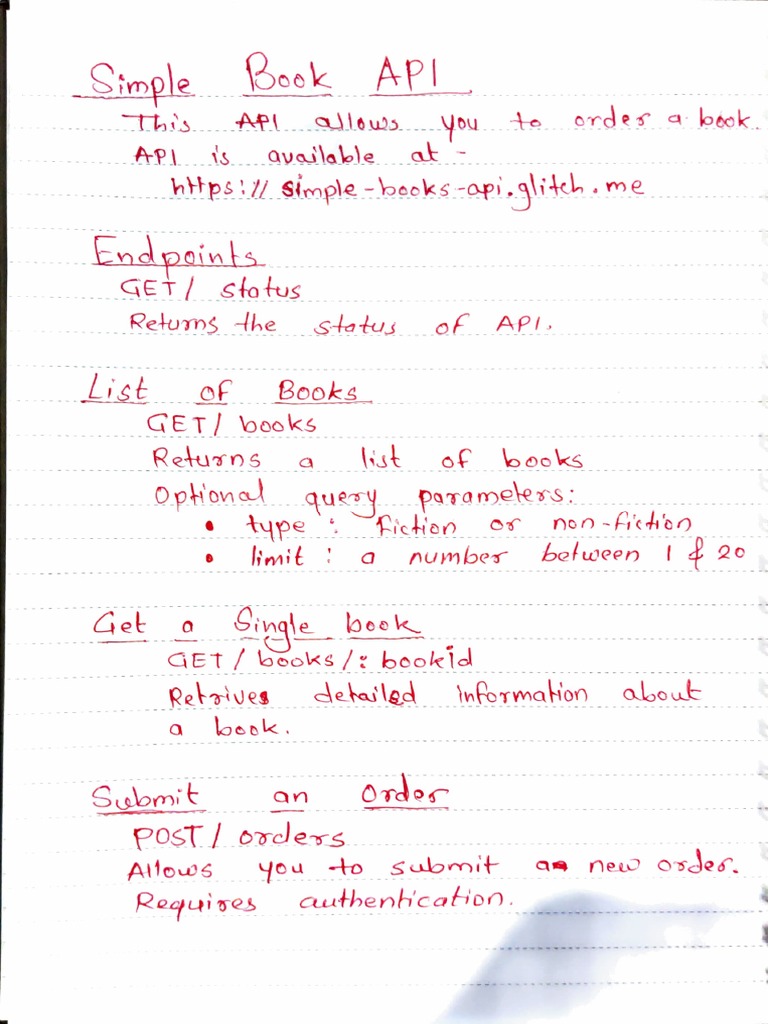 Simple Book API
This API allows you to order a book.
API is available at -
https:// simple-books-api.glitch.me
Endpoints
GET/ status
Returns the status of API.
List of Books
GET/ books
Returns a list of books
Optional query parameters:
• type : fiction or non-fiction
• limit : a number between 1 & 20
Get a Single book
GET/ books/: bookid
Retrives detailed information about
a book.
Submit an Order
POST/ orders
Allows you to submit a new order.
Requires authentication.